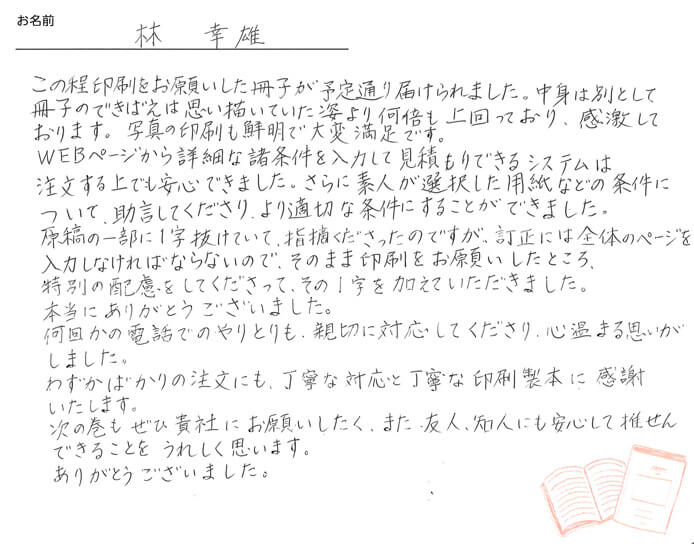 お名前
林 幸雄
この程印刷をお願いした冊子が予定通り届けられました。中身は別として
冊子のできばえは思い描いていた姿より何倍も上回っており、感激して
おります。写真の印刷も鮮明で大変満足です。
WEBページから詳細な諸条件を入力して見積もりできるシステムは
注文する上でも安心できました。さらに素人が選択した用紙などの条件に
ついて、助言してくださり、より適切な条件にすることができました。
原稿の一部に1字抜けていて、指摘くださったのですが、訂正には全体のページを
入力しなければならないので、そのまま印刷をお願いしたところ、
特別の配慮をしてくださって、その1字を加えていただきました。
本当にありがとうございました。
何回かの電話でのやりとりも、親切に対応してくださり、心温まる思いが
しました。
わずかばかりの注文にも、丁寧な対応と丁寧な印刷製本に感謝
いたします。
次の巻もぜひ貴社にお願いしたく、また友人、知人にも安心して推せん
できることをうれしく思います。
ありがとうございました。